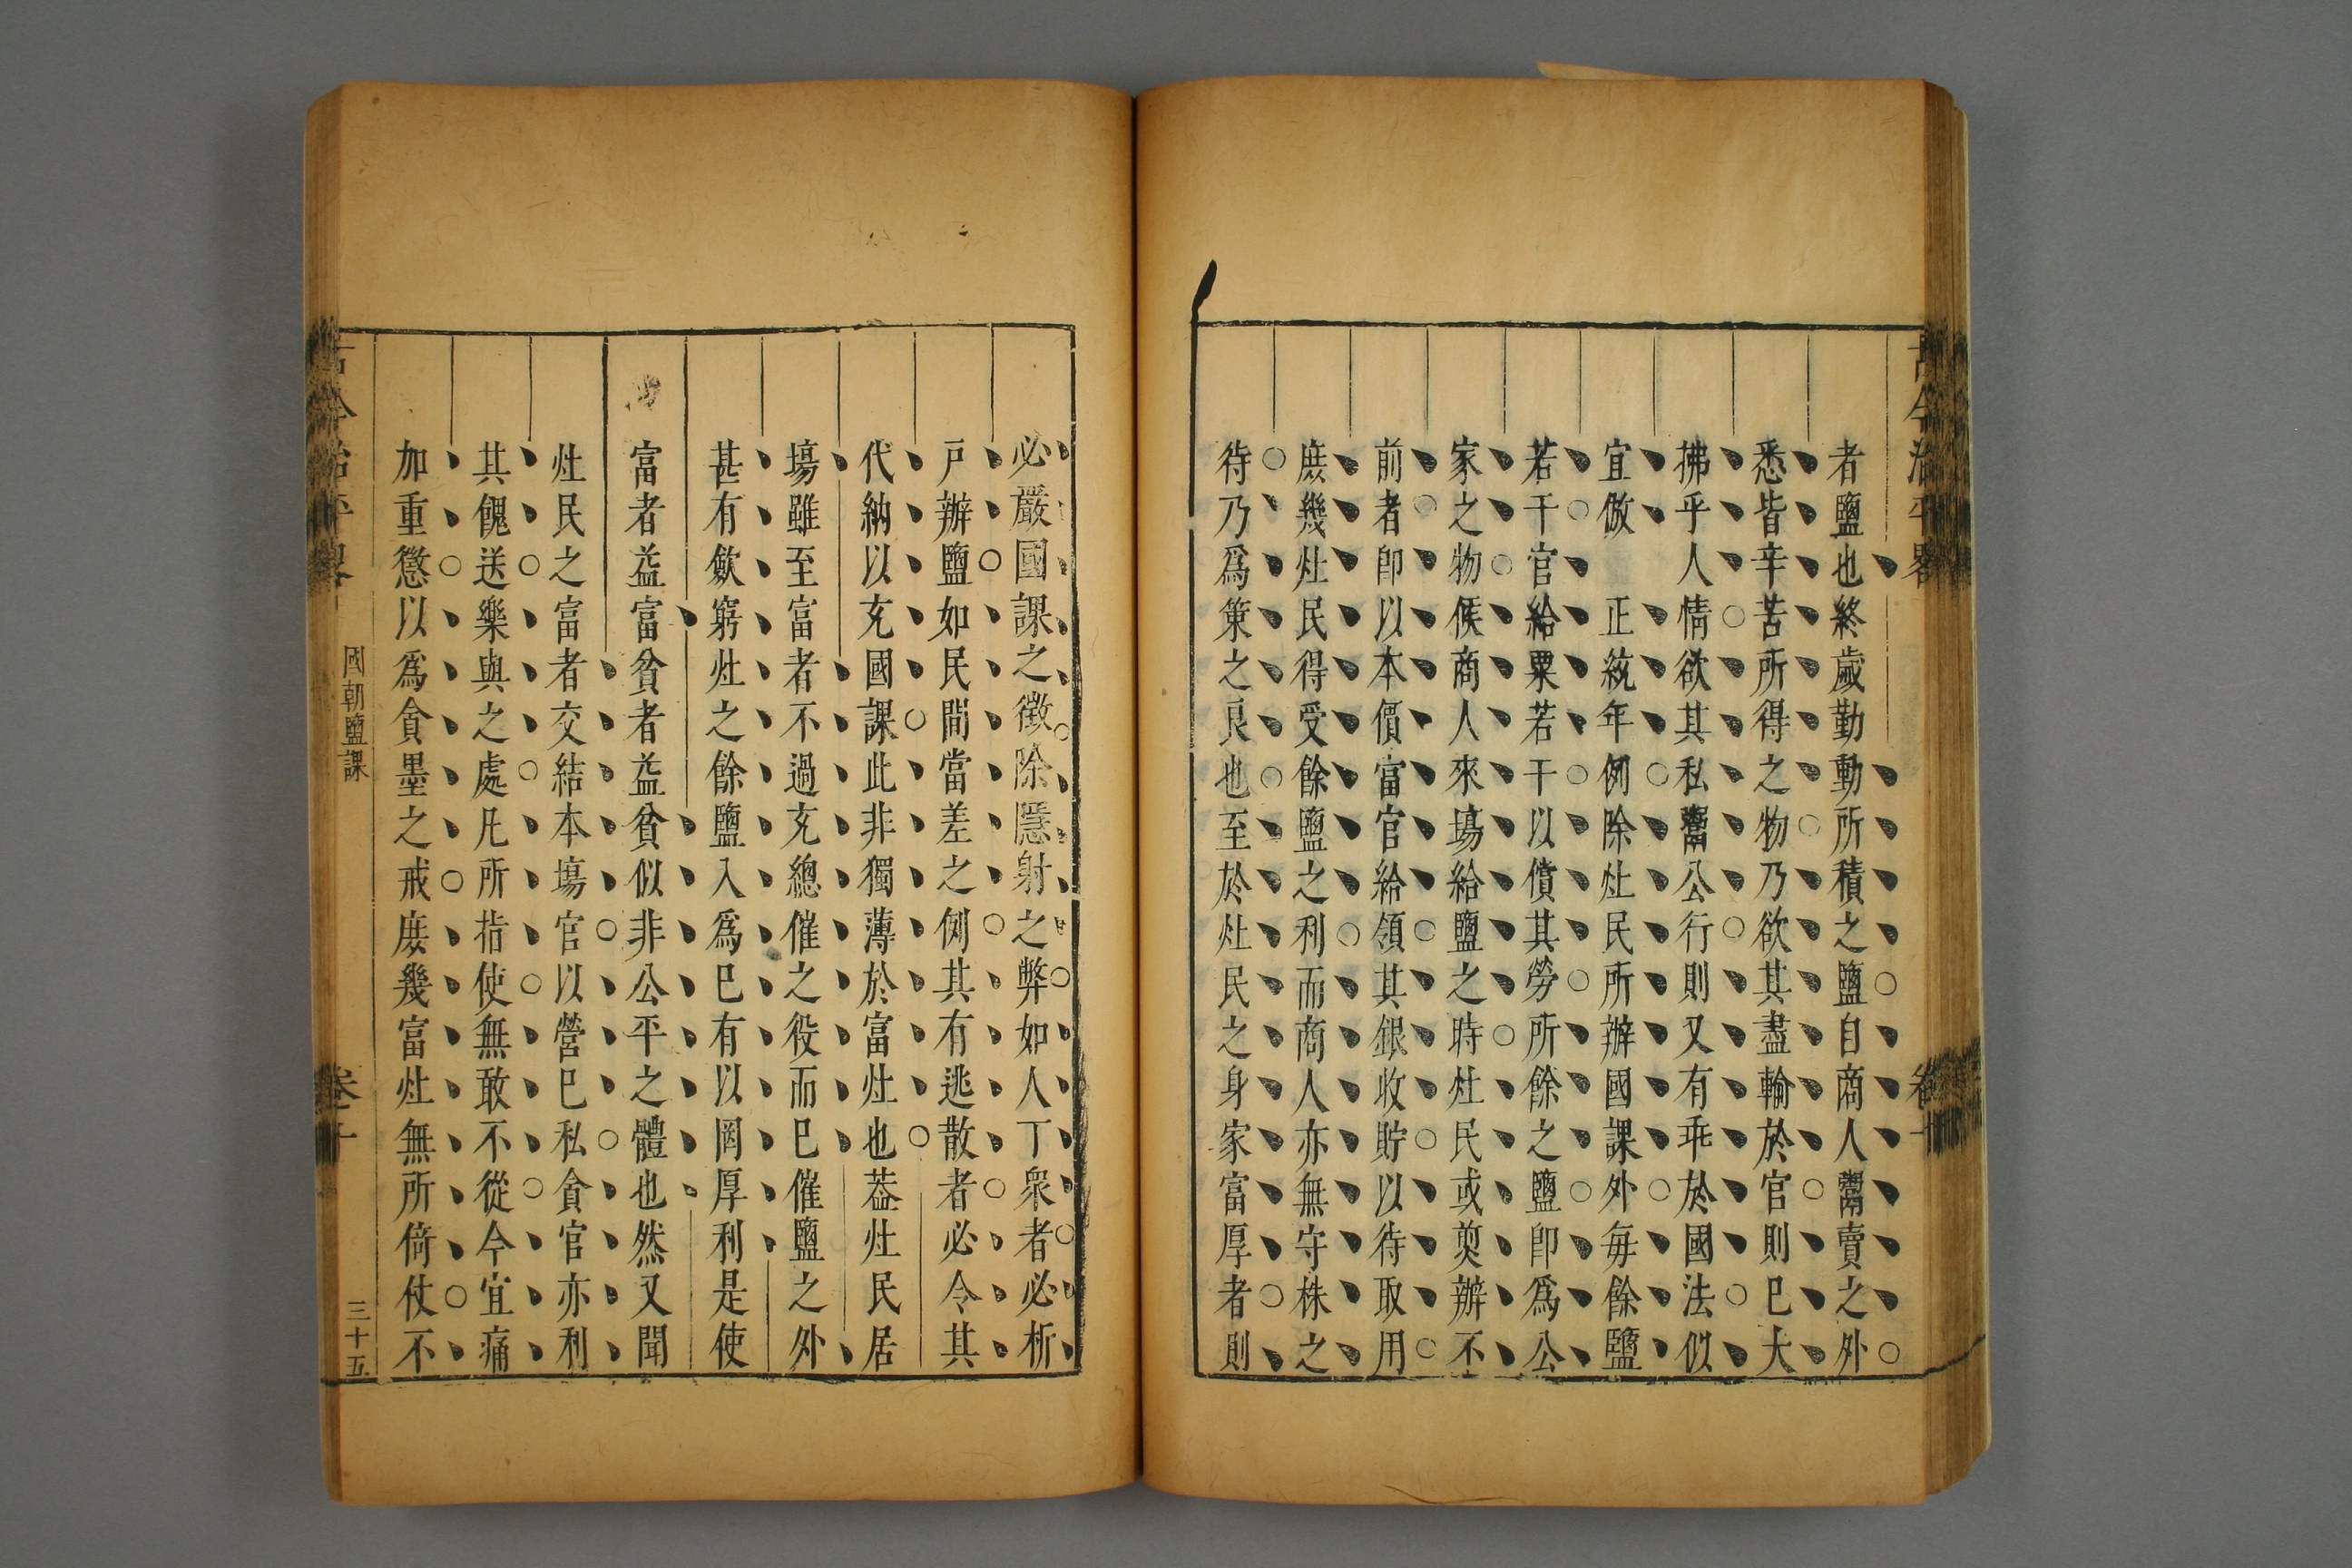 者鹽也終歲勤動所積之鹽自商人鬻賣之外
悉皆辛苦所得之物乃欲其盡輸於官則已大
拂乎人情欲其私鬻公行則又有乖於國法似
宜倣　正統年例除灶民所辦國課外每餘鹽
若干官給粟若干以償其勞所餘之鹽卽爲公
家之物候商人來塲給鹽之時灶民或煎辦不
前者卽以本價富官給領其銀收貯以待取用
庶幾灶民得受餘鹽之利而商人亦無守株之
待乃爲策之良也至於灶民之身家富厚者則
必嚴國課之徵除隱射之弊如人丁衆者必析
戸辦鹽如民間當差之例其有逃散者必令其
代納以充國課此非獨薄於富灶也葢灶民居
塲雖至富者不過充總催之役而巳催鹽之外
甚有斂窮灶之餘鹽入爲巳有以罔厚利是使
富者益富貧者益貧似非公平之體也然又聞
灶民之富者交結本塲官以營巳私貪官亦利
其餽送樂與之處凡所指使無敢不從今宜痛
加重懲以爲貪墨之戒庶幾富灶無所倚仗不
古今治平畧
國朝鹽課
卷十
三十五